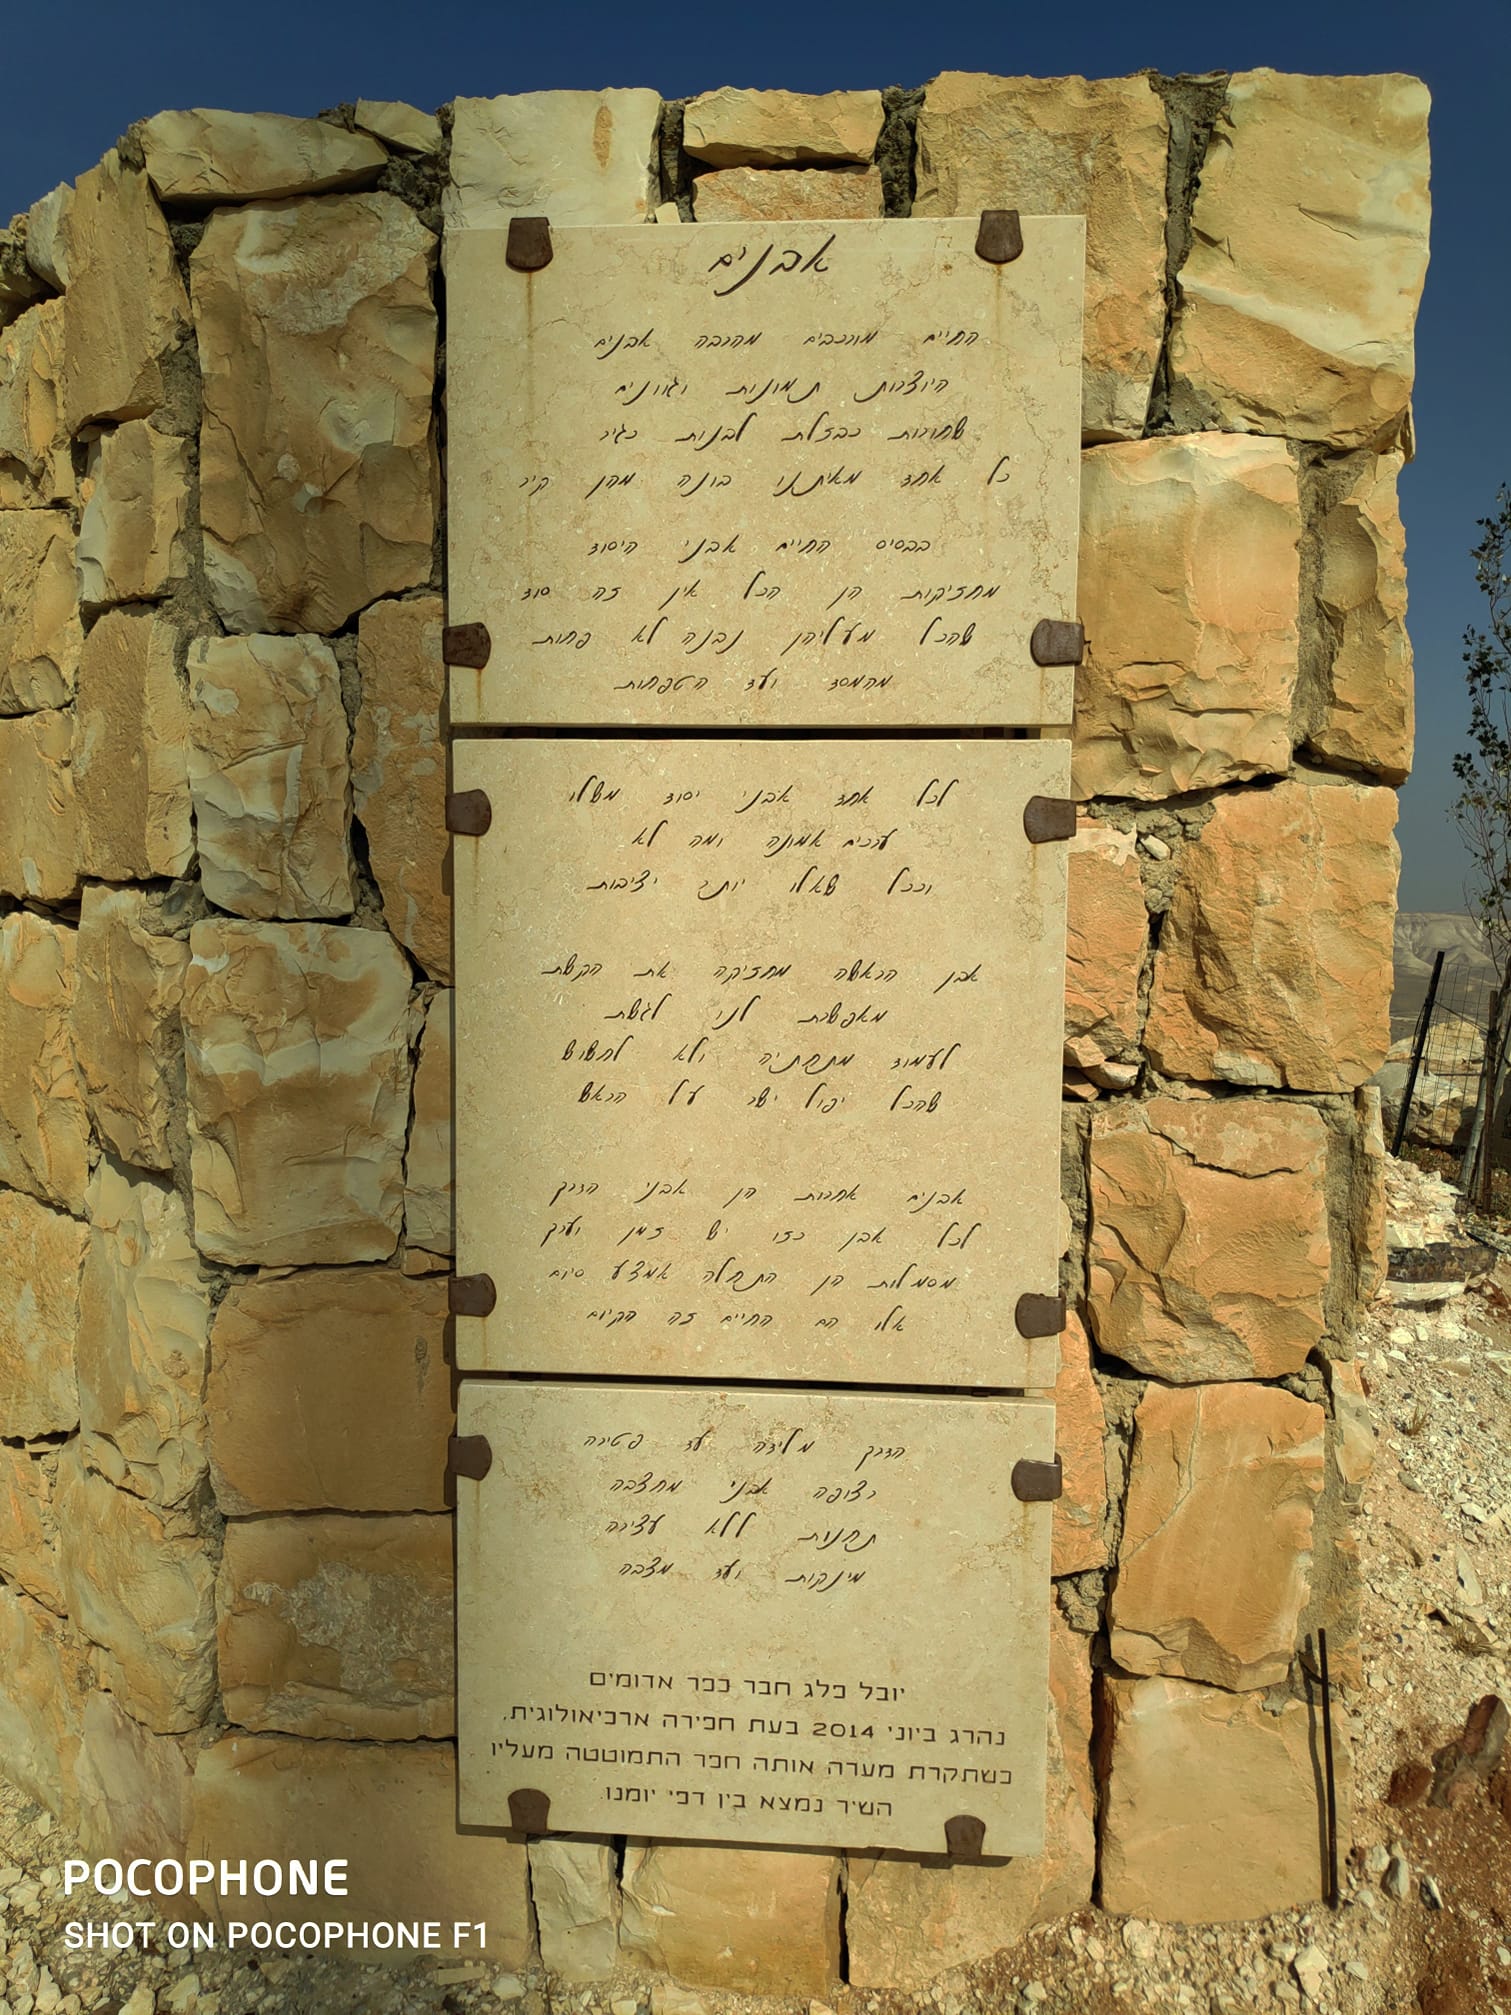 אבנים
החיים מורכבים מהרבה אבנים
היוצרות תמונות וגוונים
שחורות כבזלת לבנות כגיר
כל אחד מאיתנו בונה מהן קיר
בבסיס החיים אבני היסוד
מחזיקות הן הכל אין זה סוד
שהכל מעליהן נבנה לא פחות
מהמסד ועד הטפחות
לכל אחד אבני יסוד משלו
ערכים אמונה ומה לא
וככל שאלו יותר יציבות
אבן הראשה מחזיקה את הקשת
מאפשרת לנו לגשת
לעמוד מתחתיה ולא לחשוש
שהכל יפול ישר על הראש
אבנים אחרות הן אבני הדרך
לכל אבן כזו יש זמן וערך
מסמלות הן התחלה אמצע סיום
אלו הם החיים זה הקיום
הדרך מלידה עד פטירה
רצופה אבני מחצבה
תחנות ללא עצירה
מינקות ועד מצבה
יובל פלג חבר כפר אדומים
נהרג ביוני 2014 בעת חפירה ארכיאולוגית,
כשתקרת מערה אותה חפר התמוטטה מעליו
השיר נמצא בין דפי יומנו.
POCOPHONE
SHOT ON POCOPHONE F1